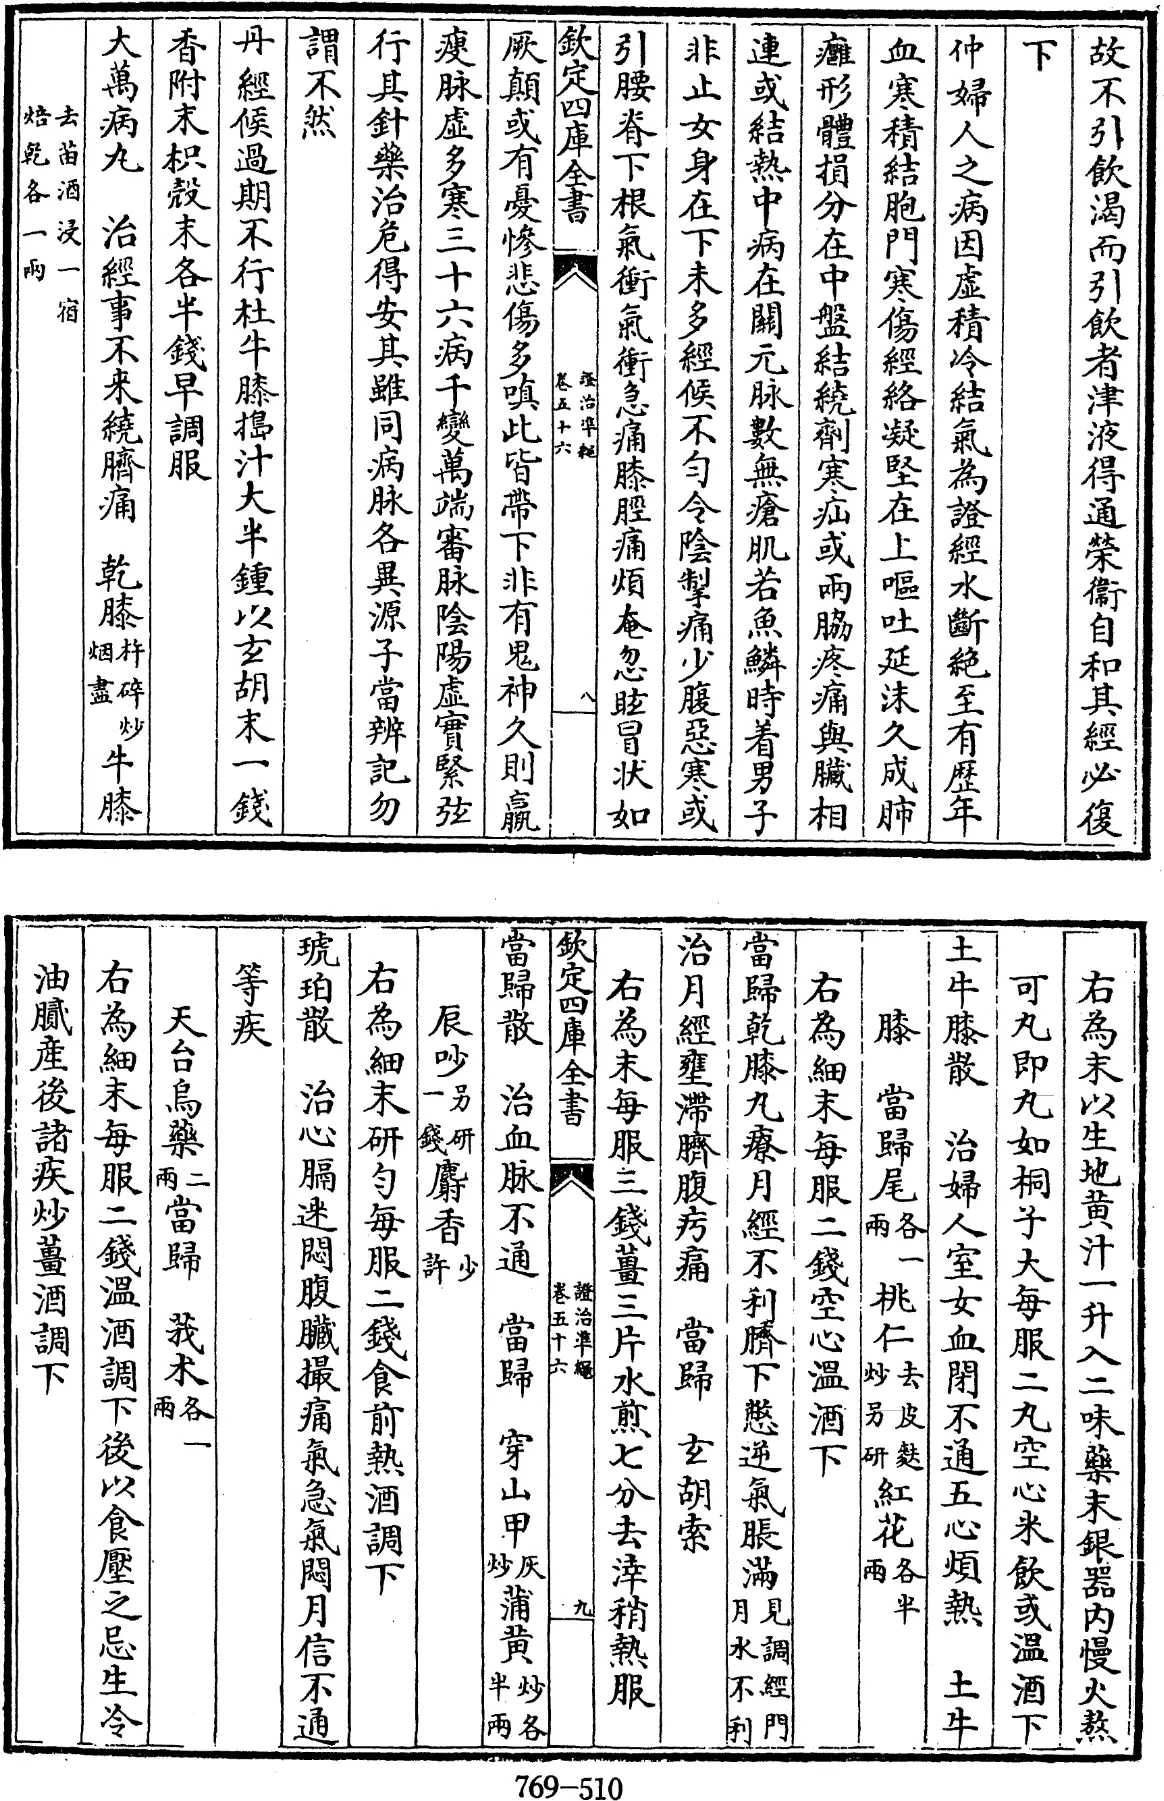 故不引飲渴而引飲者津液得通榮衞自和其經必復
下
仲婦人之病因虛積冷結氣為證經水斷絶至有歷年
血寒積結胞門寒傷經絡凝堅在上嘔吐延沫久成肺
癰形體損分在中盤結繞劑寒疝或兩脇疼痛與臟相
連或結熱中病在關元脉數無瘡肌若魚鱗時着男子
非止女身在下未多經候不匀令陰掣痛少腹惡寒或
引腰脊下根氣衝氣衝急痛膝脛痛煩奄忽眩冒状如
欽定四庫全書
證治準繩
卷五十六
八
厥顛或有憂慘悲傷多嗔此皆帶下非有鬼神久則羸
瘦脉虛多寒三十六病千變萬端審脉陰陽虛實緊弦
行其針藥治危得安其雖同病脉各異源子當辨記勿
謂不然
丹經候過期不行杜牛膝搗汁大半鍾以玄胡末一錢
香附末枳殼末各半錢早調服
大萬病丸　治經事不来繞臍痛　乾膝杵碎炒烟盡牛膝
去苗酒浸一宿焙乾各一兩
右為末以生地黄汁一升入二味藥末銀器内慢火熬
可丸即丸如桐子大每服二丸空心米飲或温酒下
土牛膝散　治婦人室女血閉不通五心煩熱　土牛
膝　當歸尾各一兩桃仁去皮麩炒另研紅花各半兩
右為細末每服二錢空心溫酒下
當歸乾膝丸療月經不利臍下憋逆氣脹滿見調經門月水不利
治月經壅滯臍腹㽲痛　當歸　玄胡索
右為末每服三錢薑三片水煎七分去滓稍熱服
欽定四庫全書
證治準繩
卷五十六
九
當歸散　治血脉不通　當歸　穿山甲灰炒蒲黄炒各半兩
辰吵另研一錢麝香少許
右為細末研匀每服二錢食前熱酒調下
琥珀散　治心膈迷悶腹臟撮痛氣急氣悶月信不通
等疾
天台烏藥二兩當歸　莪术各一兩
右為細末每服二錢溫酒調下後以食壓之忌生冷
油膩産後諸疾炒薑酒調下
769-510